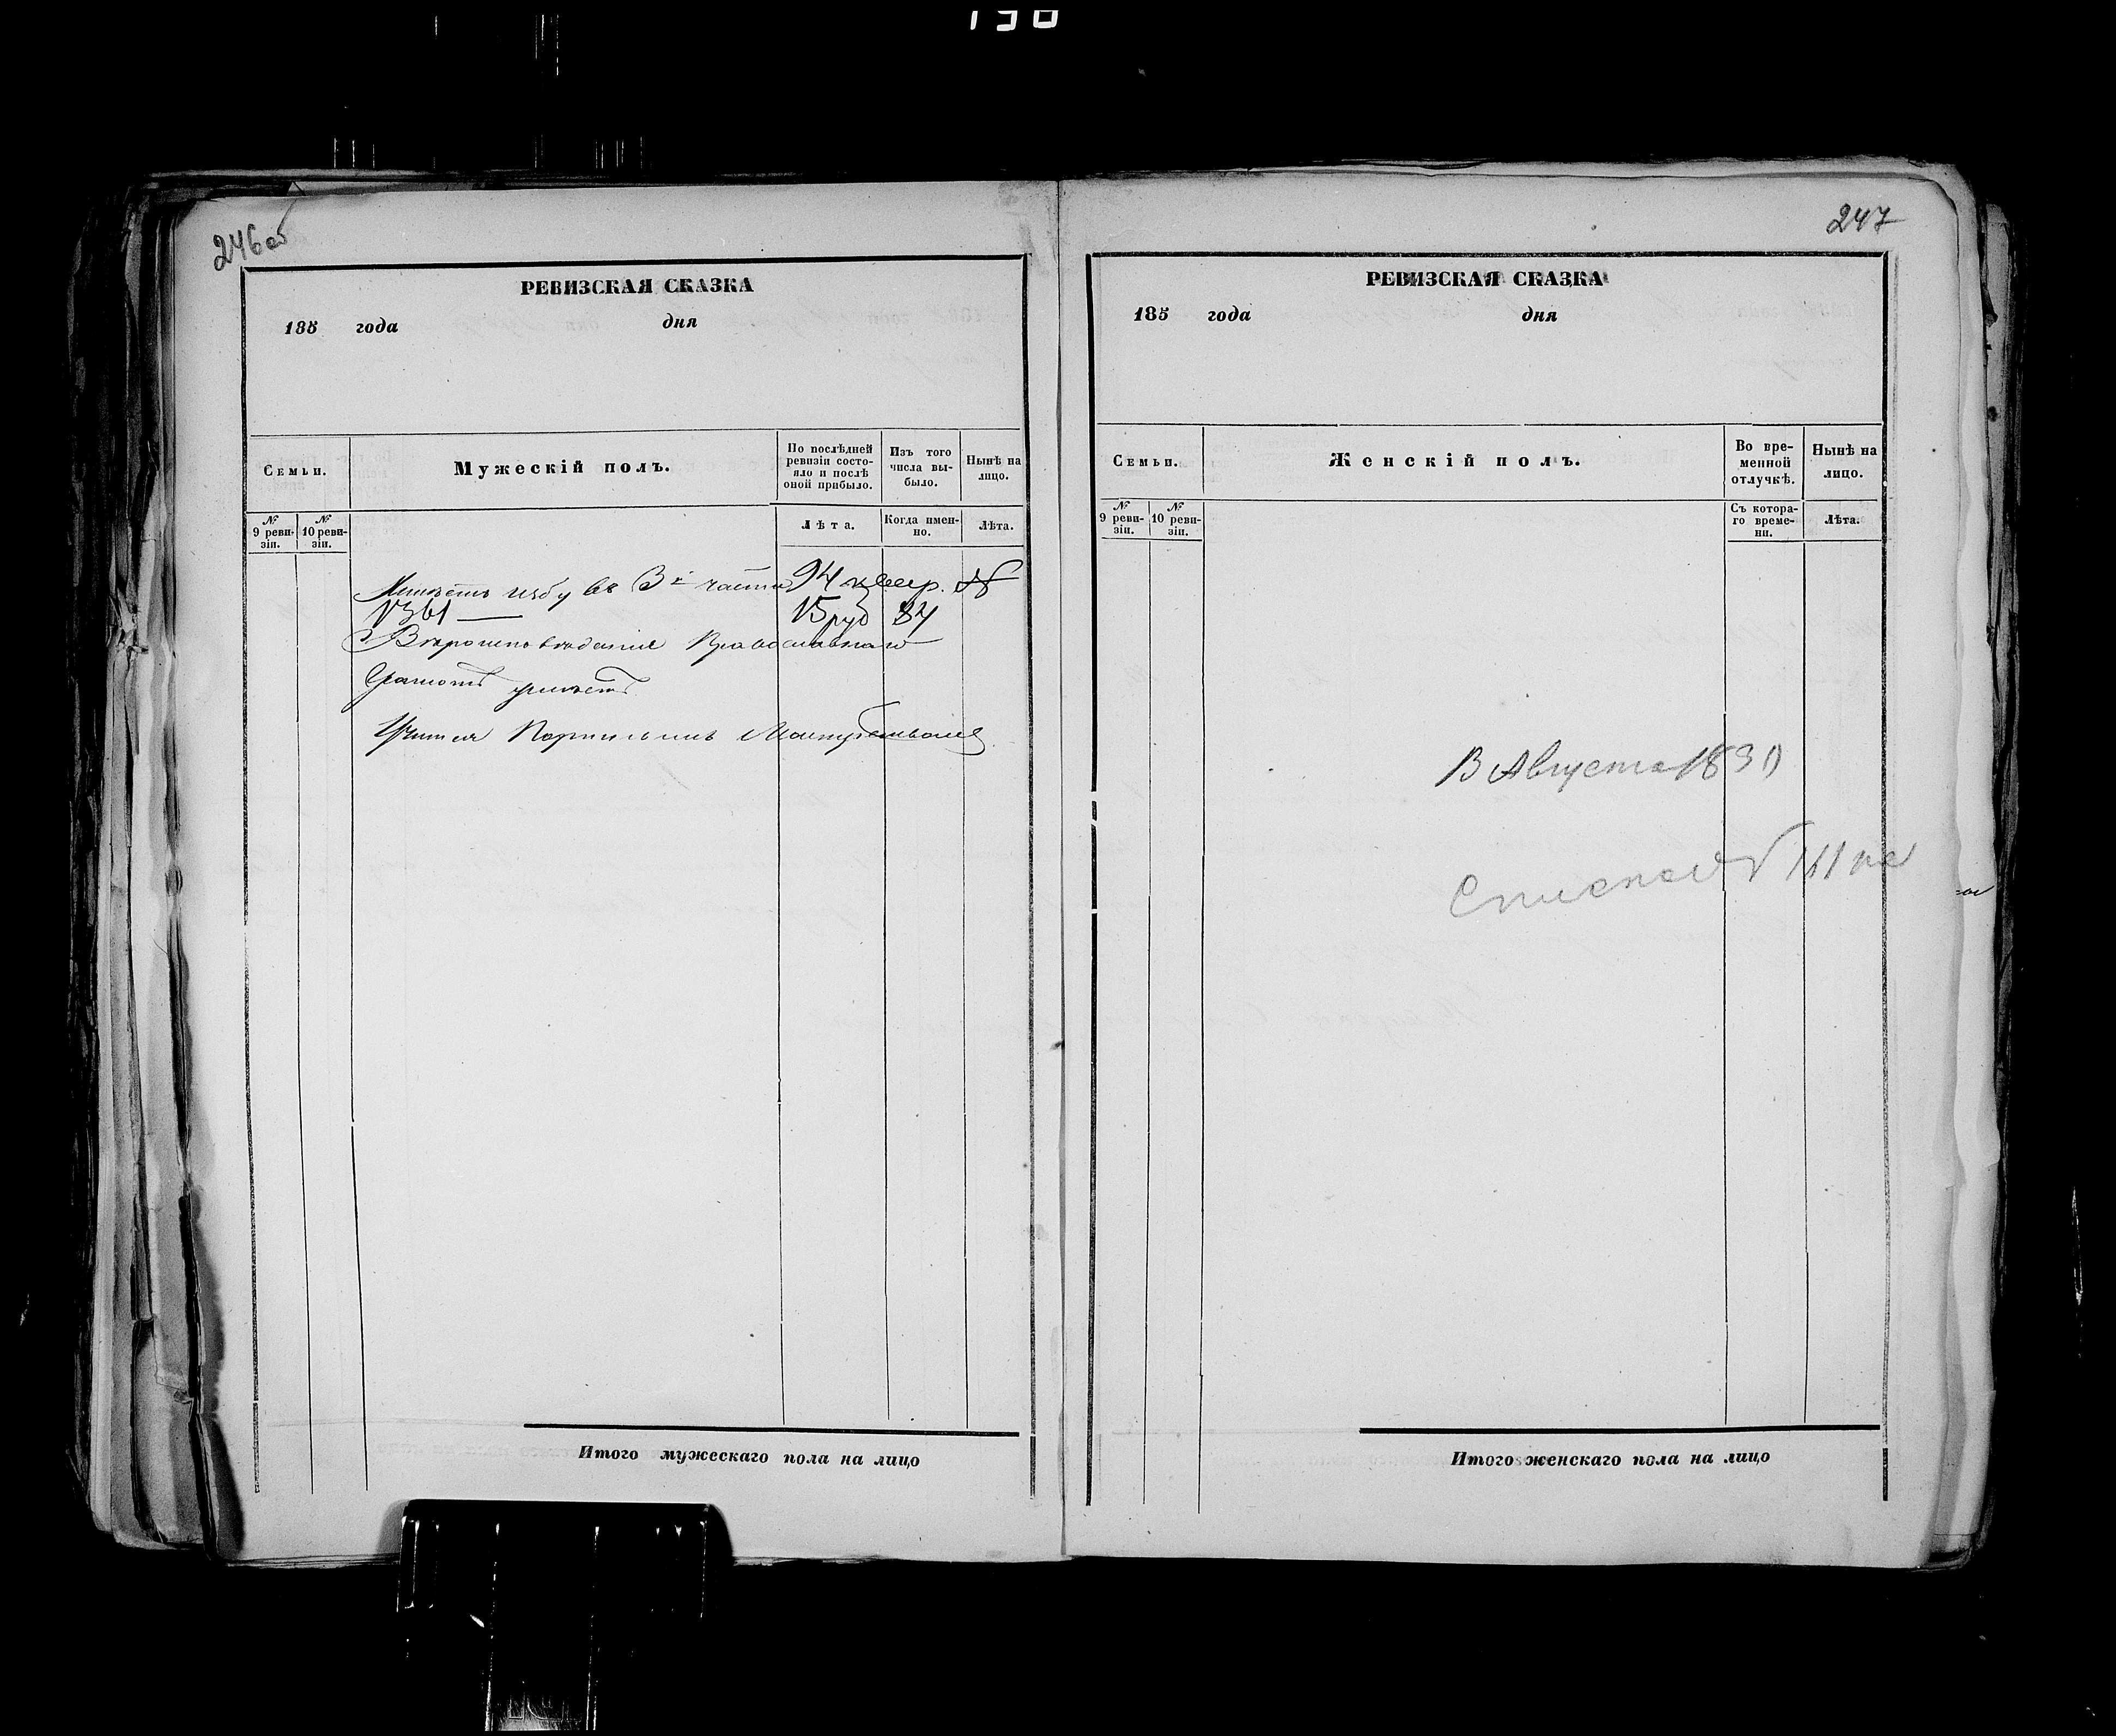 246об
РЕВИЗСКАЯ СКАЗКА
185 года дня
Семьи.
Мужескій полъ.
По послѣдней ревизіи состояло и послѣ оной прибыло.
Изъ того числа выбыло.
Нынѣ на лицо.
№ 9 ревизіи.
№ 10 ревизіи.
Лѣта.
Когда именно.
Лѣта.
Имѣетъ избу въ 3й части 94 кварт. №
№361 — 15 руб 84
Вѣроисповѣданія Православнаго
Грамотѣ умѣетъ
Итого мужескаго пола на лицо
247
РЕВИЗСКАЯ СКАЗКА
185 года дня
Семьи.
Женскій полъ.
Во временной отлучкѣ.
Нынѣ на лицо.
№ 9 ревизіи.
№ 10 ревизіи.
Съ котораго времени.
Лѣта.
В Августа 1830
Итого женскаго пола на лицо